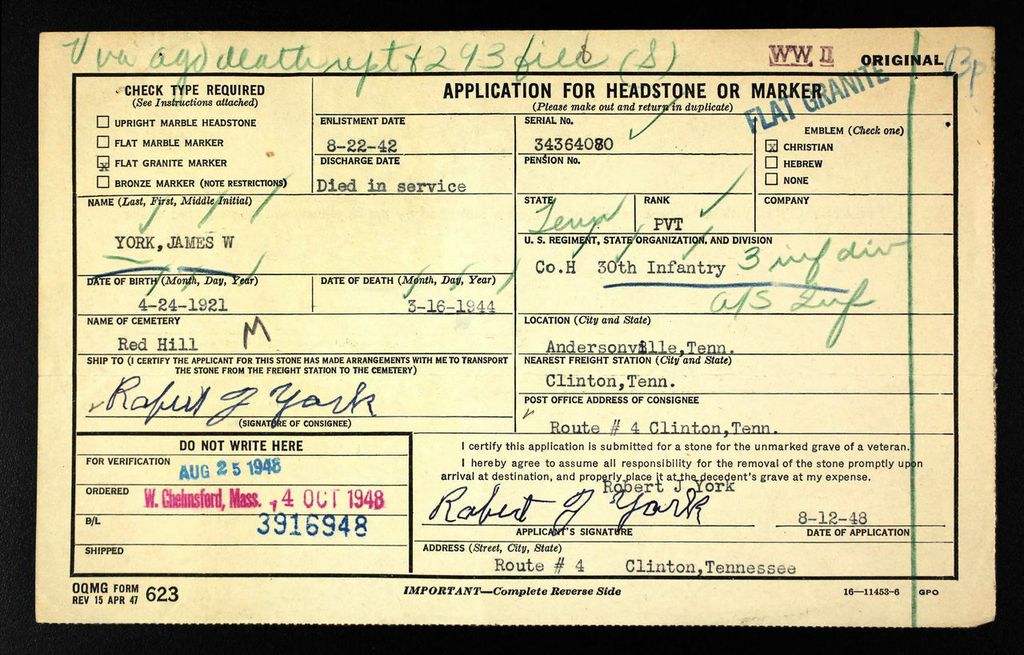 V via ago death rpt & 293 file (S)
WW II ORIGINAL
FLAT GRANITE
CHECK TYPE REQUIRED
(See Instructions attached)
☐ UPRIGHT MARBLE HEADSTONE
☐ FLAT MARBLE MARKER
☒ FLAT GRANITE MARKER
☐ BRONZE MARKER (NOTE RESTRICTIONS)
APPLICATION FOR HEADSTONE OR MARKER
(Please make out and return in duplicate)
ENLISTMENT DATE
8-22-42
DISCHARGE DATE
Died in service
SERIAL No.
34364080
PENSION No.
EMBLEM (Check one)
☒ CHRISTIAN
☐ HEBREW
☐ NONE
NAME (Last, First, Middle Initial)
YORK, JAMES W
STATE
Tenn
RANK
PVT
COMPANY
U. S. REGIMENT, STATE ORGANIZATION, AND DIVISION
Co.H 30th Infantry 3 inf div
A/S Inf
DATE OF BIRTH (Month, Day, Year)
4-24-1921
DATE OF DEATH (Month, Day, Year)
3-16-1944
NAME OF CEMETERY
Red Hill
M
LOCATION (City and State)
Andersonville,Tenn.
SHIP TO (I CERTIFY THE APPLICANT FOR THIS STONE HAS MADE ARRANGEMENTS WITH ME TO TRANSPORT
THE STONE FROM THE FREIGHT STATION TO THE CEMETERY)
Robert J York
(SIGNATURE OF CONSIGNEE)
NEAREST FREIGHT STATION (City and State)
Clinton,Tenn.
POST OFFICE ADDRESS OF CONSIGNEE
Route # 4 Clinton,Tenn.
DO NOT WRITE HERE
FOR VERIFICATION
AUG 25 1948
ORDERED
W. Chelmsford, Mass. , 4 OCT 1948
B/L
3916948
SHIPPED
I certify this application is submitted for a stone for the unmarked grave of a veteran.
I hereby agree to assume all responsibility for the removal of the stone promptly upon
arrival at destination, and properly place it at the decedent's grave at my expense.
Robert J York
Robert J York
8-12-48
APPLICANT'S SIGNATURE
DATE OF APPLICATION
ADDRESS (Street, City, State)
Route # 4 Clinton,Tennessee
OQMG FORM
REV 15 APR 47 623
IMPORTANT—Complete Reverse Side
16—11453-6 GPO